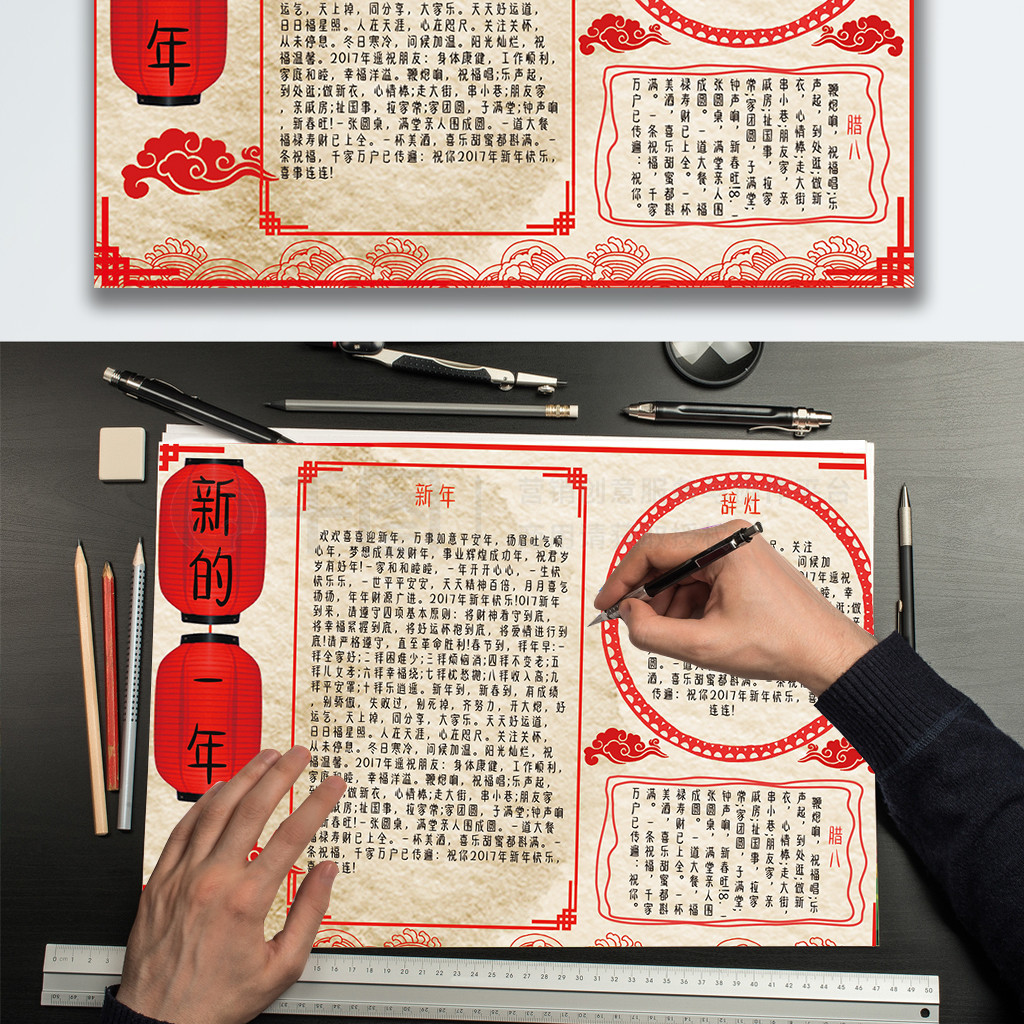 年
运气，天上掉，同分享，大家乐。天天好运道，
日日福星照。人在天涯，心在咫尺。关注关怀，
从未停息。冬日寒冷，问候加温。阳光灿烂，祝
福温馨。2017年遥祝朋友：身体康健，工作顺利，
家庭和睦，幸福洋溢。鞭炮响，祝福唱;乐声起，
到处逛;做新衣，心情棒;走大街，串小巷;朋友家
，亲戚房;扯国事，拉家常;家团圆，子满堂;钟声响
，新春旺!一张圆桌，满堂亲人围成圆。一道大餐
福禄寿财已上全。一杯美酒，喜乐甜蜜都斟满。一
条祝福，千家万户已传遍：祝你2017年新年快乐，
喜事连连!
腊八
鞭炮响，祝福唱;乐
声起，到处逛;做新
衣，心情棒;走大街，
串小巷;朋友家，亲
戚房;扯国事，拉家
常;家团圆，子满堂;
钟声响，新春旺!8.一
张圆桌，满堂亲人围
成圆。一道大餐，福
禄寿财已上全。一杯
美酒，喜乐甜蜜都斟
满。一条祝福，千家
万户已传遍：祝你。
新的
一年
新年
欢欢喜喜迎新年，万事如意平安年，扬眉吐气顺
心年，梦想成真发财年，事业辉煌成功年，祝君岁
岁有好年!一家和和睦睦，一年开开心心，一生快
快乐乐，一世平平安安，天天精神百倍，月月喜气
扬扬，年年财源广进。2017年新年快乐!017新年
到来，请遵守四项基本原则：将财神看守到底，
将幸福紧握到底，将好运怀抱到底，将爱情进行到
底!请严格遵守，直至革命胜利!春节到，拜年早:一
拜全家好;二拜困难少;三拜烦恼消;四拜不变老;五
拜儿女孝;六拜幸福绕;七拜忧愁抛;八拜收入高;九
拜平安罩;十拜乐逍遥。新年到，新春到，有成绩
，别骄傲，失败过，别死掉，齐努力，开大炮，好
运气，天上掉，同分享，大家乐。天天好运道，
日日福星照。人在天涯，心在咫尺。关注关怀，
从未停息。冬日寒冷，问候加温。阳光灿烂，祝
福温馨。2017年遥祝朋友：身体康健，工作顺利，
家庭和睦，幸福洋溢。鞭炮响，祝福唱;乐声起，
做新衣，心情棒;走大街，串小巷;朋友家
戚房;扯国事，拉家常;家团圆，子满堂;钟声响
新春旺!一张圆桌，满堂亲人围成圆。一道大餐
福禄寿财已上全。一杯美酒，喜乐甜蜜都斟满。一
条祝福，千家万户已传遍：祝你2017年新年快乐，
连连!
辞灶
尺。关注
问候加
017年遥祝
睦，幸
逛;做
満。一条祝福
传遍：祝你2017年新年快乐，
连连!
腊八
鞭炮响，祝福唱;乐
声起，到处逛;做新
衣，心情棒;走大街，
串小巷;朋友家，亲
戚房;扯国事，拉家
常;家团圆，子满堂;
钟声响，新春旺!8.一
张圆桌，满堂亲人围
成圆。一道大餐，福
禄寿财已上全。一杯
美酒，喜乐甜蜜都斟
满。一条祝福，千家
万户已传遍：祝你。